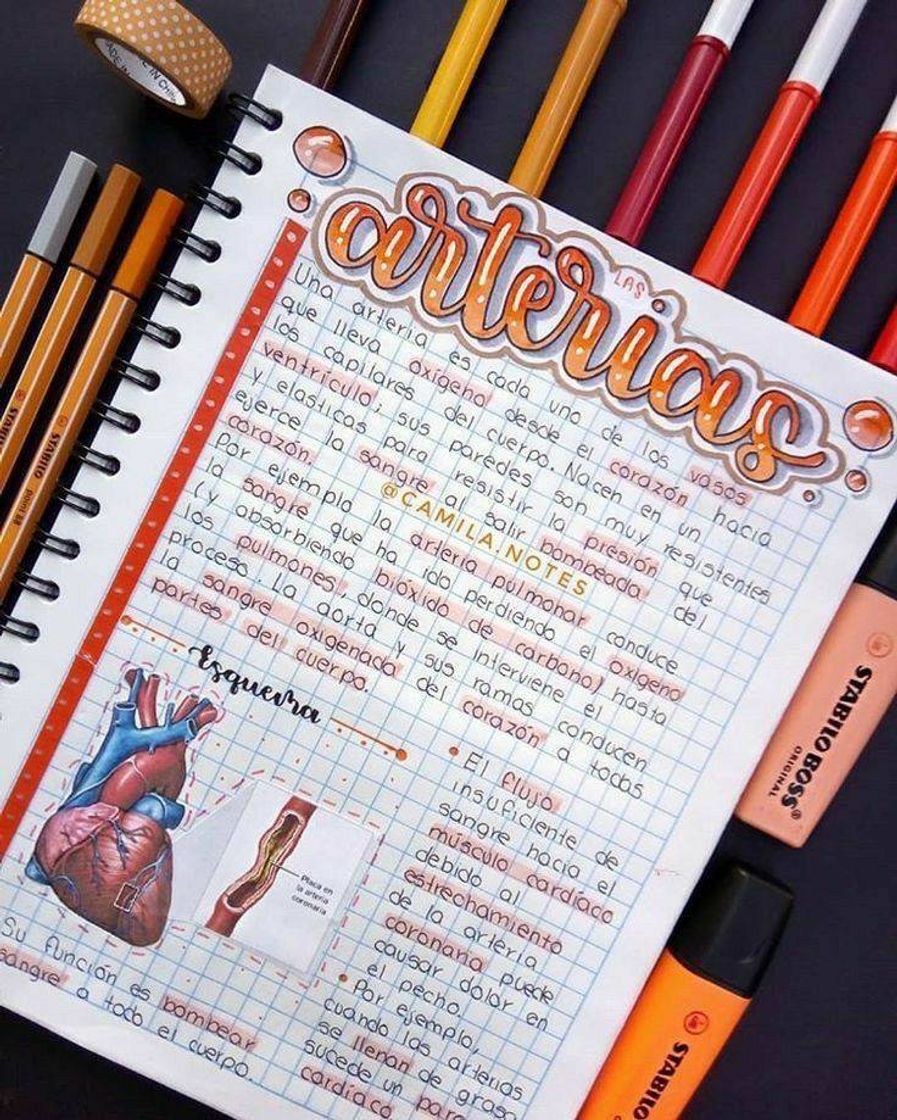 LAS
arterias
Una arteria es cada uno de los vasos
que lleva oxígeno desde el corazón hacia
los capilares del cuerpo. Nacen en un
ventrículo; sus paredes son muy resistentes
y elasticas para resistir la presión que
ejerce la sangre al salir bombeada del
corazón.
Por ejemplo la arteria pulmonar conduce
la sangre que ha ido perdiendo el oxígeno
(y absorbiendo bióxido de carbono) hasta
los pulmones, donde se interviene el
proceso. La aorta y sus ramas conducen
la sangre oxigenada del corazón a todas
partes del cuerpo.
@CAMILA.NOTES
Esquema
Placa en
la arteria
coronaria
El flujo
insuficiente de
sangre hacia el
músculo cardíaco
debido al
estrechamiento
de la arteria
coronaria puede
causar dolor en
el pecho.
Por ejemplo,
cuando las arterias
se llenan de grasa
sucede un paro
cardíaco
Su función es bombear
sangre a todo el cuerpo.
STABILO
point 88
STABILO BOSS
ORIGINAL
STABILO
MADE IN CHINA